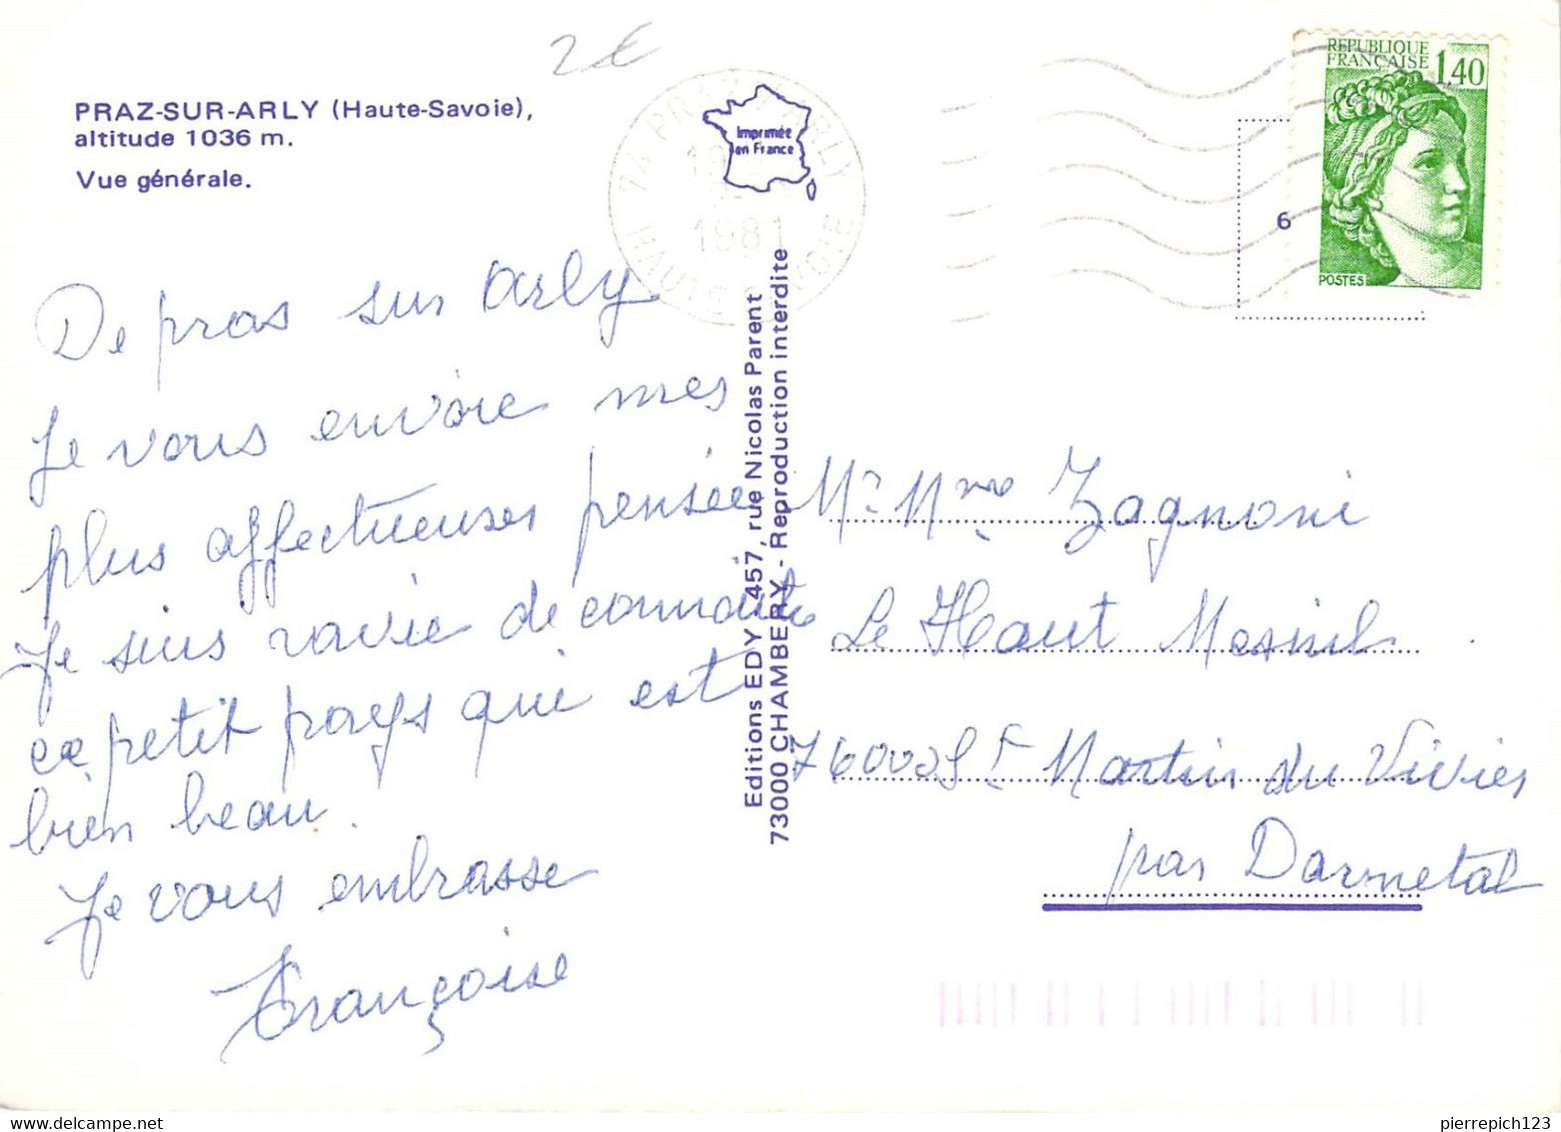 2€
PRAZ-SUR-ARLY (Haute-Savoie),
altitude 1036 m.
Vue générale.
Imprimée
en France
74 PRAZ ARLY
1981
HAUTE SAVOIE
REPUBLIQUE
FRANÇAISE
1,40
POSTES
6
De pras sur Arly
Je vous envoie mes
plus affectueuses pensée
Je suis ravie de connaître
ce petit pays qui est
bien beau.
Je vous embrasse
Françoise
Editions EDY - 457, rue Nicolas Parent
73000 CHAMBERY - Reproduction interdite
Mr Mme Zagnoni
Le Haut Mesnil
76000 St Martin du Vivier
par Darnetal
pierrepich123